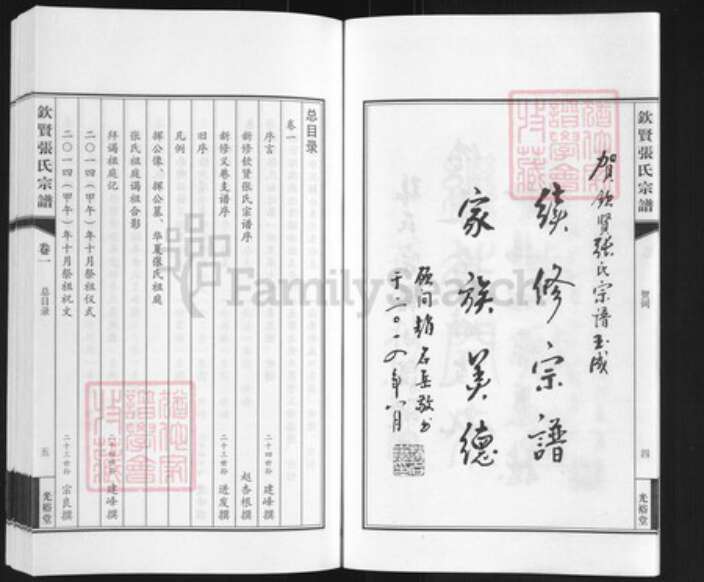 欽賢張氏宗譜
賀词
四
光裕堂
贺钦贤張氏宗谱玉成
续修宗譜
家族美德
顾问赵石岳敬书
于二〇一四年八月
总目录
卷一
序言 二十四世孙 建峰撰
新修钦贤张氏宗谱序 赵杏根撰
新修义巷支谱序 二十三世孙 进发撰
旧序
凡例
挥公像、挥公墓、华夏张氏祖庭
张氏祖庭谒祖合影
拜谒祖庭记 建峰撰
二〇一四（甲午）年十月祭祖仪式
二〇一四（甲午）年十月祭祖祝文 二十三世孙 宗良撰
欽賢張氏宗譜
卷一
总目录
五
光裕堂
FamilySearch